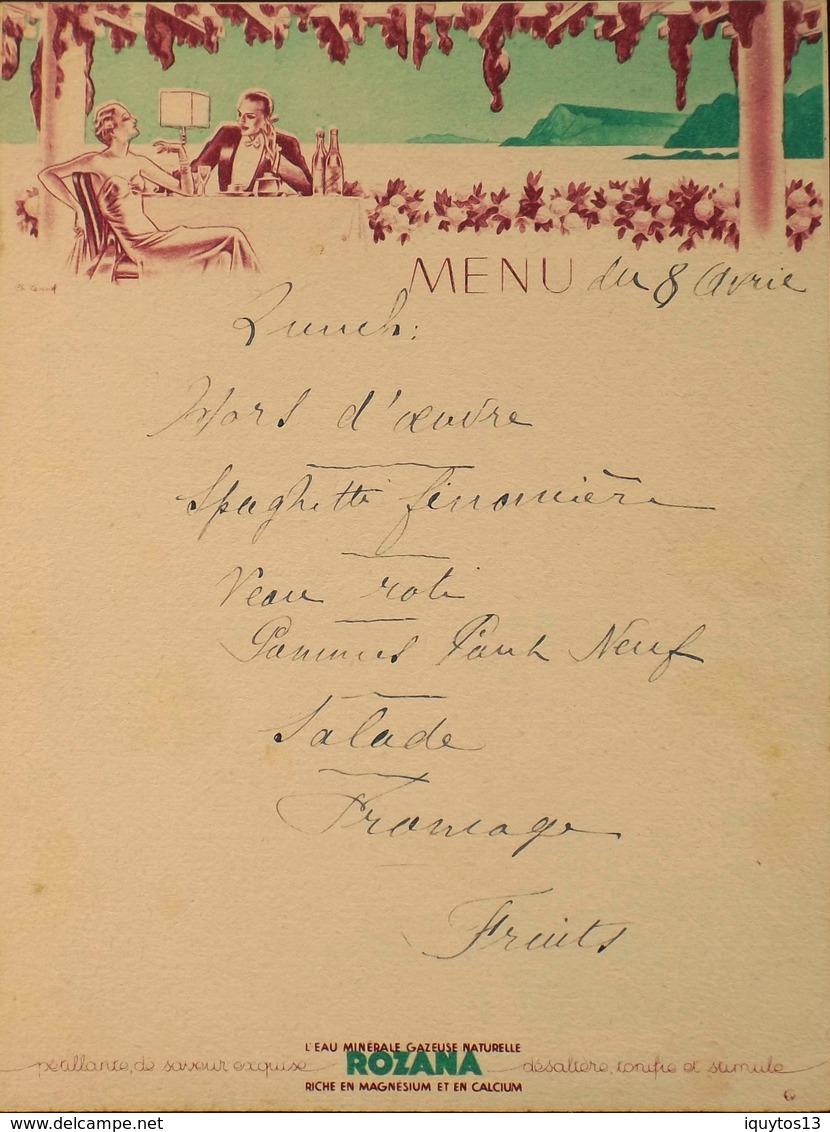 MENU du 8 Avril
Lunch:
Hors d'œuvre
Spaghetti financière
Veau roti
Pommes Pont Neuf
Salade
Fromage
Fruits
L'EAU MINÉRALE GAZEUSE NATURELLE
pétillante, de saveur exquise ROZANA désaltère, tonifie et stimule
RICHE EN MAGNÉSIUM ET EN CALCIUM
www.delcampe.net
iquytos13